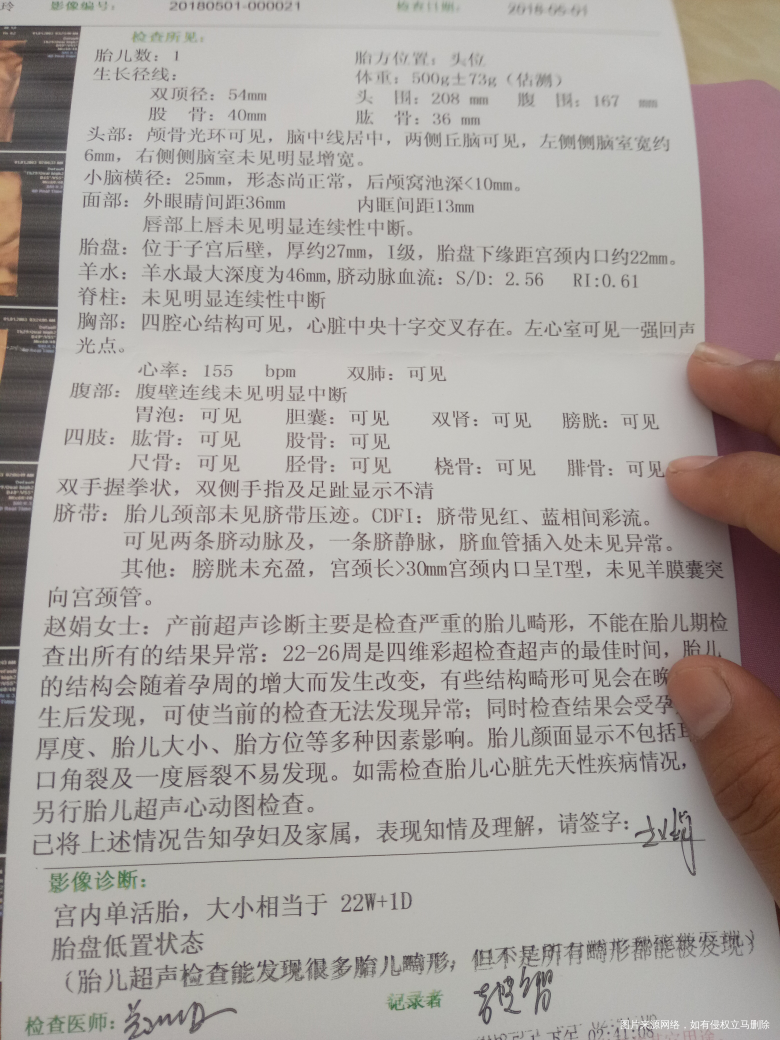 玲 影像编号: 20180501-000021 检查日期: 2018-05-01
检查所见:
胎儿数: 1 胎方位置: 头位
生长径线: 体重: 500g±73g(估测)
双顶径: 54mm 头 围: 208 mm 腹 围: 167 mm
股 骨: 40mm 肱 骨: 36 mm
头部: 颅骨光环可见, 脑中线居中, 两侧丘脑可见, 左侧侧脑室宽约
6mm, 右侧侧脑室未见明显增宽。
小脑横径: 25mm, 形态尚正常, 后颅窝池深<10mm。
面部: 外眼睛间距36mm 内眶间距13mm
唇部上唇未见明显连续性中断。
胎盘: 位于子宫后壁, 厚约27mm, I级, 胎盘下缘距宫颈内口约22mm。
羊水: 羊水最大深度为46mm,脐动脉血流: S/D: 2.56 RI:0.61
脊柱: 未见明显连续性中断
胸部: 四腔心结构可见, 心脏中央十字交叉存在。左心室可见一强回声
光点。
心率: 155 bpm 双肺: 可见
腹部: 腹壁连线未见明显中断
胃泡: 可见 胆囊: 可见 双肾: 可见 膀胱: 可见
四肢: 肱骨: 可见 股骨: 可见
尺骨: 可见 胫骨: 可见 桡骨: 可见 腓骨: 可见
双手握拳状, 双侧手指及足趾显示不清
脐带: 胎儿颈部未见脐带压迹。CDFI: 脐带见红、蓝相间彩流。
可见两条脐动脉及, 一条脐静脉, 脐血管插入处未见异常。
其他: 膀胱未充盈, 宫颈长>30mm宫颈内口呈T型, 未见羊膜囊突
向宫颈管。
赵娟女士: 产前超声诊断主要是检查严重的胎儿畸形, 不能在胎儿期检
查出所有的结果异常: 22-26周是四维彩超检查超声的最佳时间, 胎儿
的结构会随着孕周的增大而发生改变, 有些结构畸形可见会在晚
生后发现, 可使当前的检查无法发现异常; 同时检查结果会受孕
厚度、胎儿大小、胎方位等多种因素影响。胎儿颜面显示不包括
口角裂及一度唇裂不易发现。如需检查胎儿心脏先天性疾病情况,
另行胎儿超声心动图检查。
已将上述情况告知孕妇及家属, 表现知情及理解, 请签字:
影像诊断:
宫内单活胎, 大小相当于 22W+1D
胎盘低置状态
(胎儿超声检查能发现很多胎儿畸形, 但不是所有畸形都能被发现)
检查医师: 记录者
下午 02:41:08
图片来源网络，如有侵权立马删除